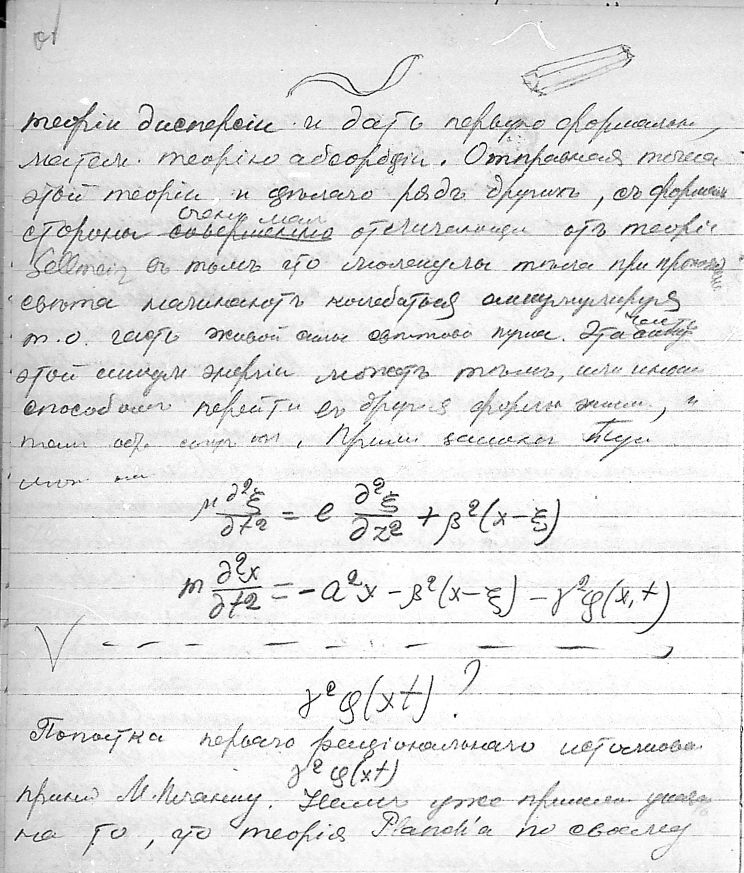 теорiи дисперсiи и дать первую формальн
матем. теорiю абсорбцiи. Отправная точка
этой теорiи и цѣлаго ряда другихъ, съ формальн
стороны совершенно очень мал отличающи отъ теорiи
Sellmeier въ томъ что молекулы тѣла при прохожд
свѣта начинаютъ колебаться аккумулируя
т. о. часть живой силы свѣтового пучка. Эта часть
этой энергiи можетъ тѣмъ, или иным
способомъ перейти въ другiя формы энергiи, и
таким обр.
μ ∂²ξ/∂t² = e ∂²ξ/∂z² + β²(x-ξ)
m ∂²x/∂t² = -a²x - β²(x-ξ) - γ²φ(x,t)
γ²φ(xt) ?
Попытка перваго рацiональнаго истолков.
γ²φ(xt)
прина М. Планку. Намъ уже пришлось указать
на то, что теорiя Planck'a по своему